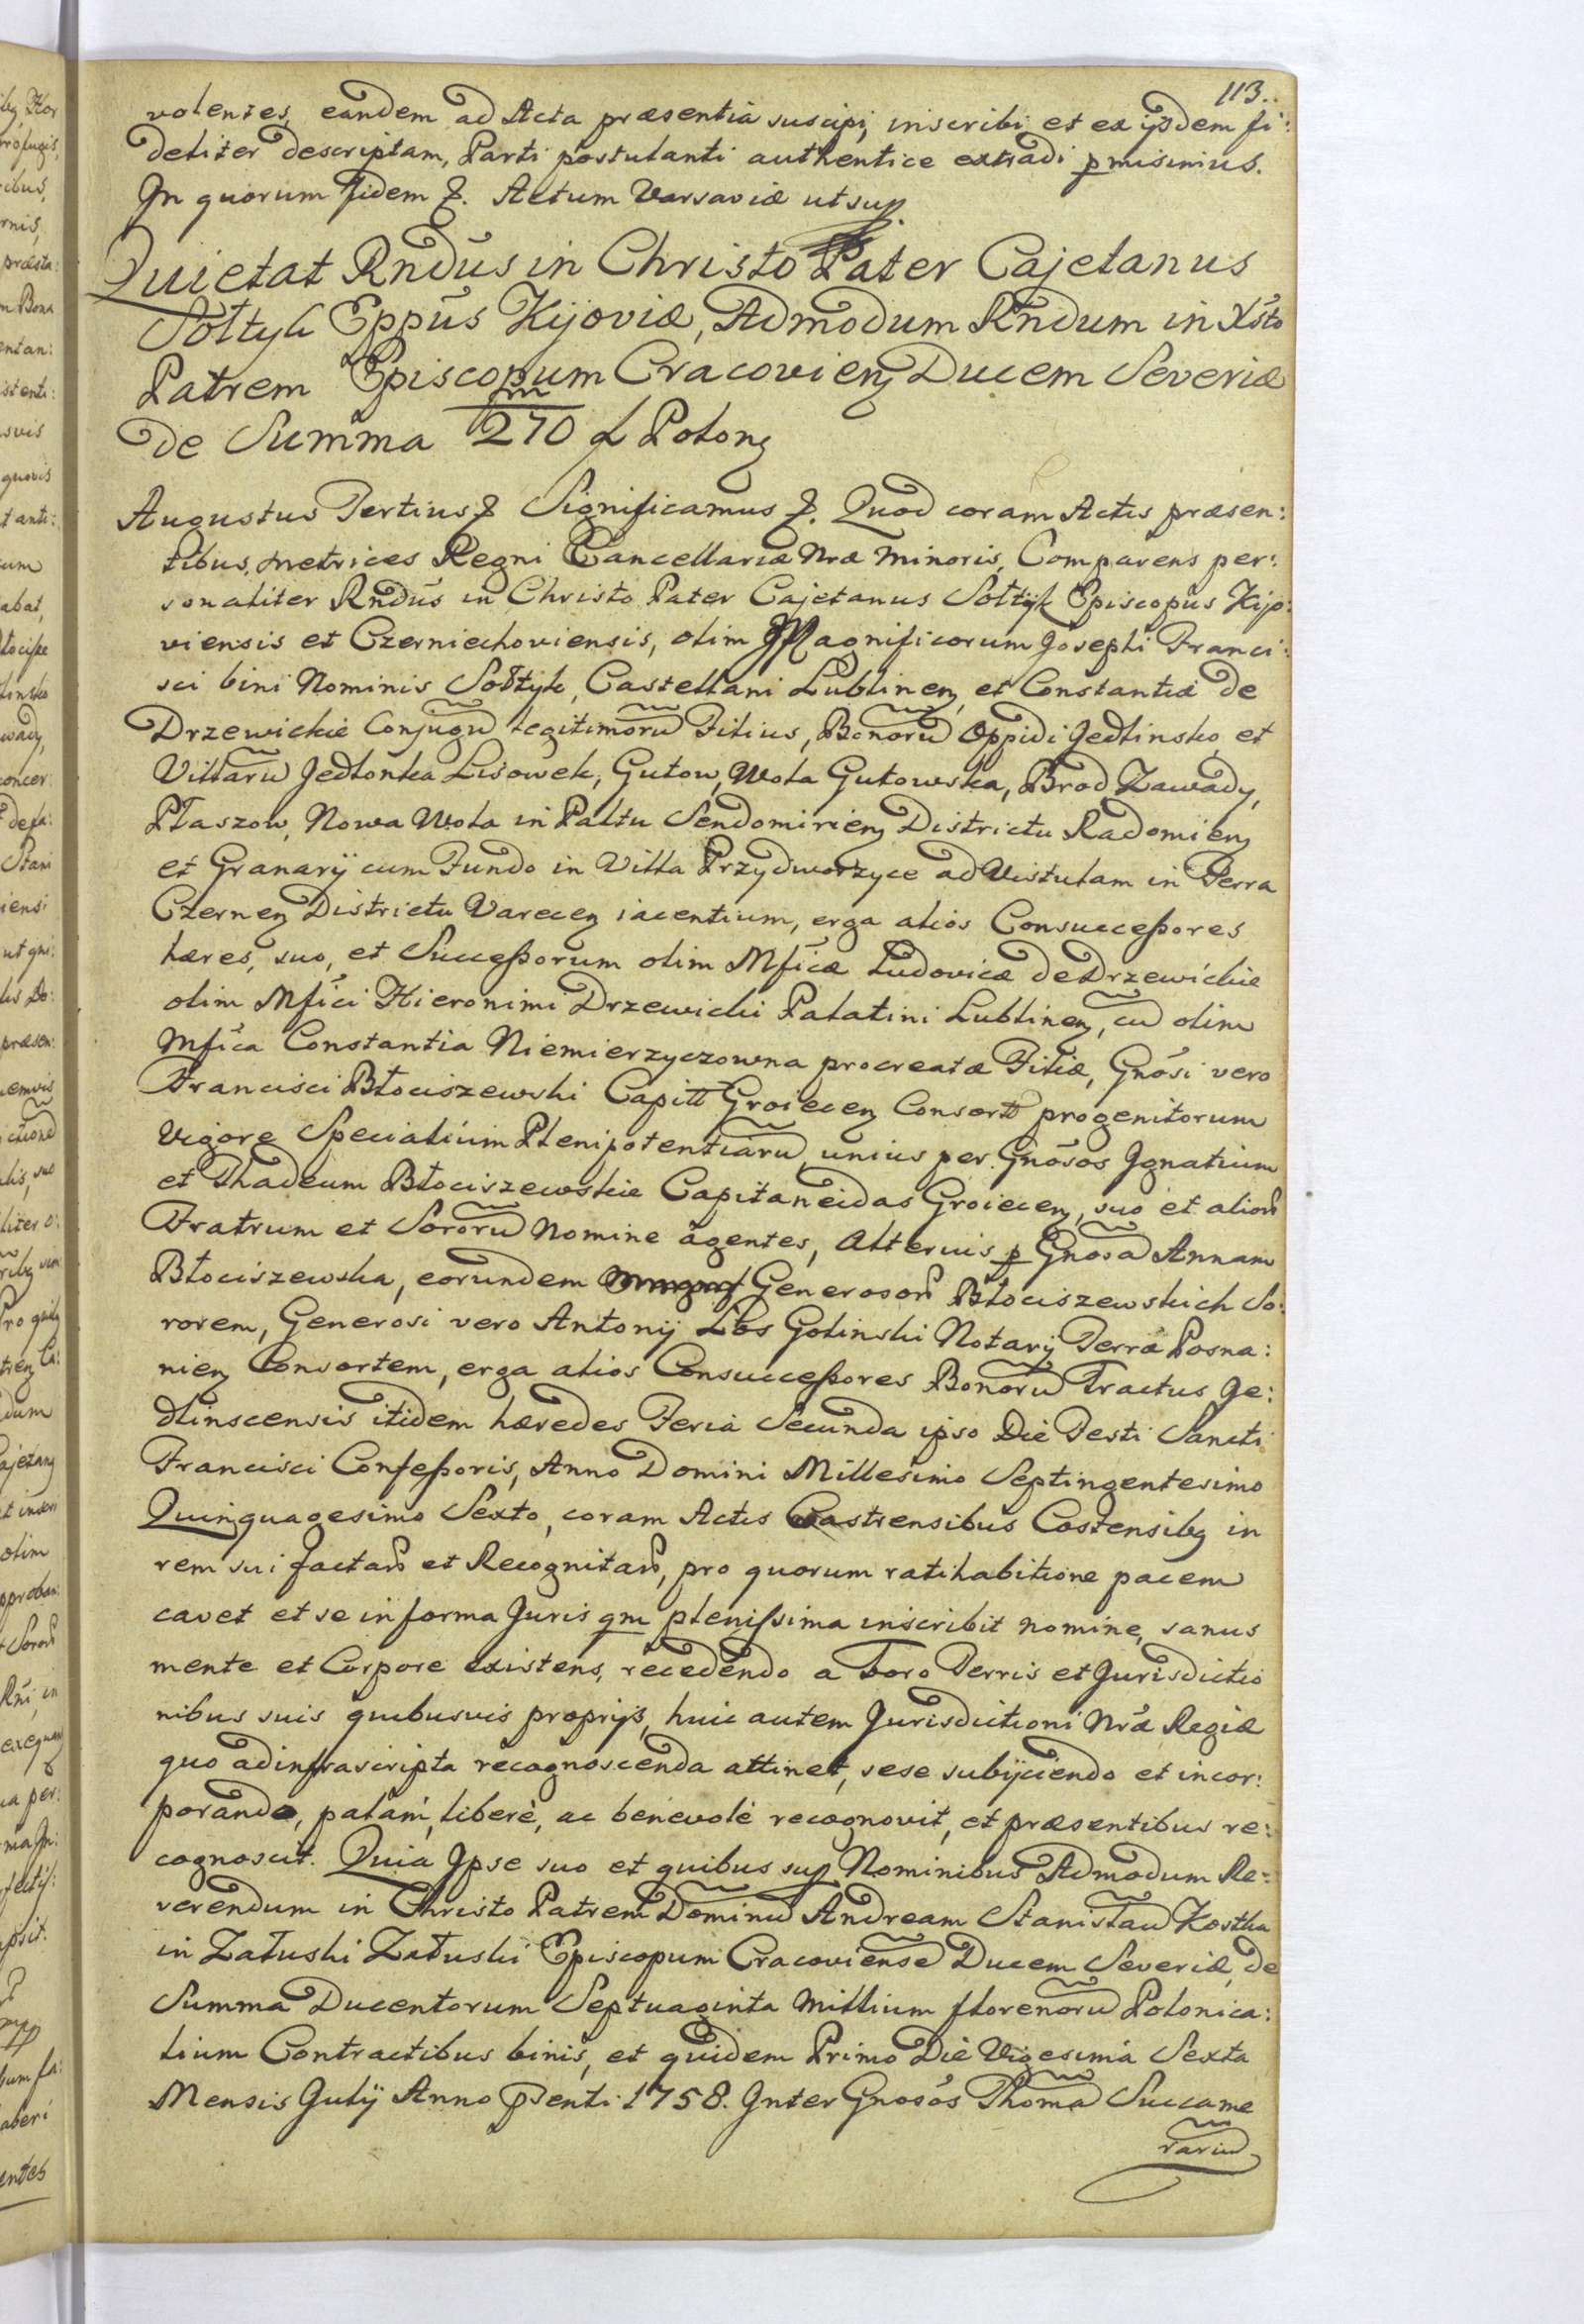 113.
volentes, eandem ad Acta præsentia suscipi, inscribi et ex ijsdem fi:
deliter descriptam, Parti postulanti authentice extradi pmisimus.
In quorum fidem &. Actum Varsaviæ ut sup.
Quietat Rndūs in Christo Pater Cajetanus
Sołtyk Eppūs Kijoviæ, Admodum Rndum in Xsto
Patrem Episcopum Cracovien Ducem Severiæ
de Summa m/270 f Polon
Augustus Tertius & Significamus &. Quod coram Actis præsen:
tibus, metrices Regni Cancellariæ Nræ Minoris, Comparens per:
sonaliter Rndūs in Christo Pater Cajetanus Sołtyk Episcopus Kijo:
viensis et Czerniechoviensis, olim Magnificorum Josephi Franci:
sci bini Nominis Sołtyk, Castellani Lublinen, et Constantiæ de
Drzewickie Conjugū legitimorū Filius, Bonorū Oppidi Jedlinsko et
Villarū Jedlonka Lisowek, Gutow, Wola Gutowska, Brod Zawady,
Płaszow, Nowa Wola in Paltu Sendomirien Districtu Radomien
et Granarij cum Fundo in Villa Przydworzyce ad Vistulam in Terra
Czernen Districtu Varecen iacentium, erga alios Consuccessores
hæres, suo, et Successorum olim Mficæ Ludovicæ de Drzewickie
olim Mfici Hieronimi Drzewicki Palatini Lublinen, cū olim
Mfica Constantia Niemierzyczowna procreatæ Filiæ, Gnosi vero
Francisci Błociszewski Capitt Groiecen Consort progenitorum
vigore Specialium Plenipotentiarū, unius per Gnōsos Ignatium
et Thadeum Błociszewskie Capitaneidas Groiecen, suo et alior
Fratrum et Sororū Nomine agentes, Alterius p Gnosā Annam
Błociszewska, eorundem Generosor Błociszewskich So:
rorem, Generosi vero Antonij Łbs Golinski Notarij Terræ Posna:
nien Consortem, erga alios Consuccessores Bonorū Tractus Je:
dlinscensis itidem hæredes Feria Secunda ipso Die Festi Sancti
Francisci Confessoris, Anno Domini Millesimo Septingentesimo
Quinquagesimo Sexto, coram Actis Castrensibus Costensibq in
rem sui factar et Recognitar, pro quorum ratihabitione pacem
cavet et se in forma Juris qm plenissima inscribit nomine, sanus
mente et Corpore existens, recedendo a Foro Terris et Jurisdictio
nibus suis quibusvis proprijs, huic autem Jurisdictioni Nræ Regiæ
quo ad infrascripta recognoscenda attinet, sese subijciendo et incor:
porando, palam, liberè, ac benevolè recognovit, et præsentibus re:
cognoscit. Quia Ipse suo et quibus sup Nominibus Admodum Re=
verendum in Christo Patrem Dominū Andream Stanisław Kostka
in Załuski Załuski Episcopum Cracoviense Ducem Severiæ, de
Summa Ducentorum Septuaginta Millium florenorū Polonica:
lium Contractibus binis, et quidem Primo Die Vigesima Sexta
Mensis Julij Anno psenti 1758. Inter Gnosos Thomā Succame
rariū